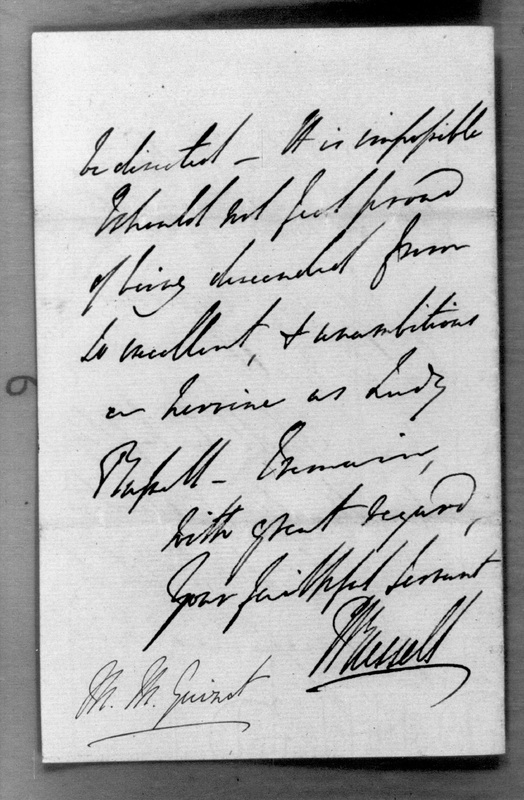 be directed – It is impossible
I should not feel proud
of being descended from
so excellent, & unambitious
an heroine as Lady
Russell – I remain,
with great regard,
Your faithful Servant
Russell
M. M. Guizot
6